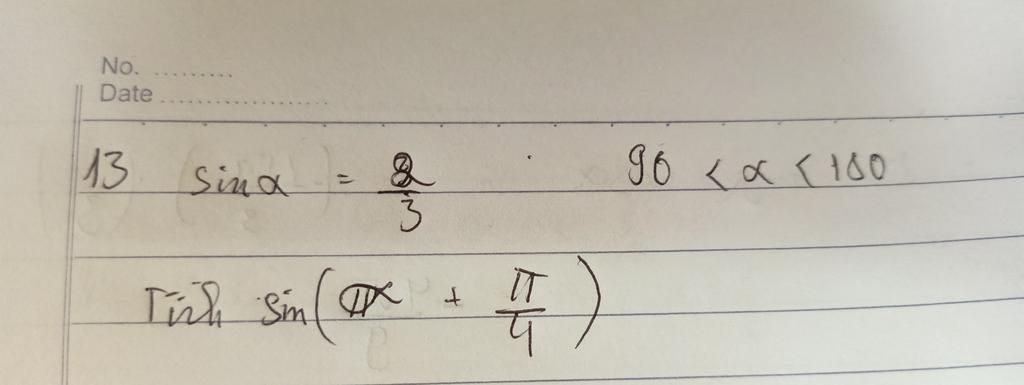 No. ..........
Date ....................
13 sin α = 2/3 90 < α < 180
Tính sin(α + π/4)